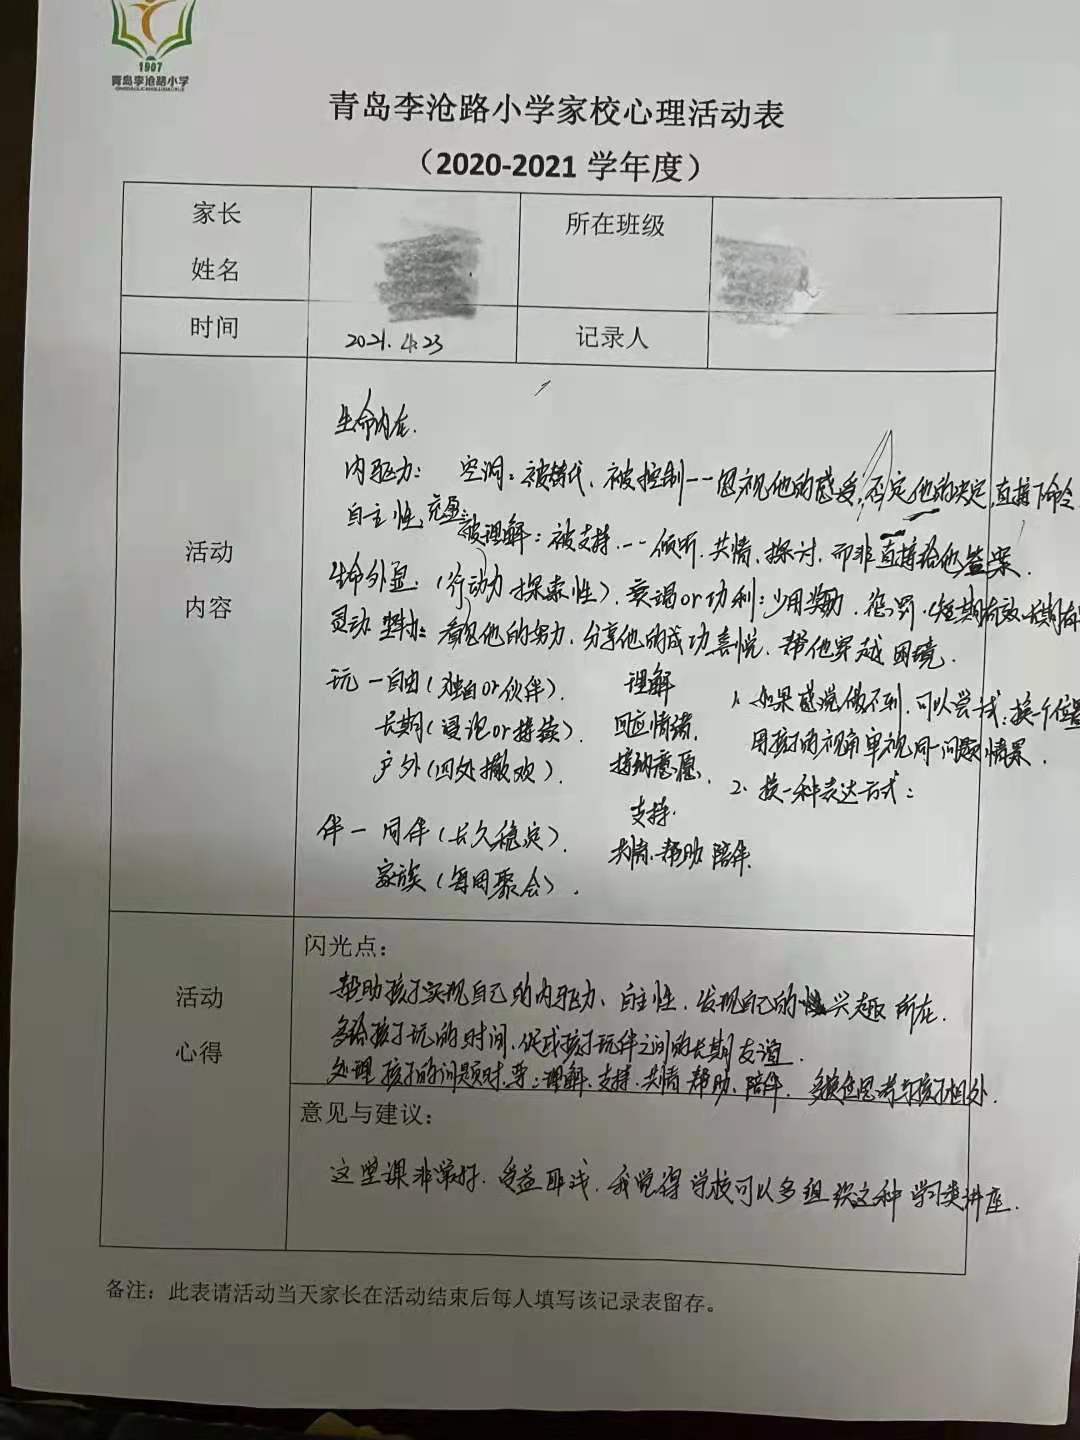 1907
青岛李沧路小学
青岛李沧路小学家校心理活动表
（2020-2021 学年度）
家长
姓名
所在班级
时间
2021.4.23
记录人
活动
内容
生命内在.
内驱力： 空洞：被替代、被控制--忽视他的感受,否定他的决定,直接下命令
自主性 充盈：被理解：被支持.--倾听.共情、探讨,而非直接给他答案.
生命外显.（行动力 探索性）. 衰竭or功利：少用奖励、惩罚.（短期有效.长期有
灵动 : 看见他的努力、分享他的成功喜悦、帮他穿越困境.
玩－自由（独自or伙伴）.
长期（浸泡or持续）.
户外（四处撒欢）.
伴－同伴（长久稳定）.
家族（每周聚会）.
理解
回应情绪.
接纳意愿.
支持.
共情.帮助 陪伴.
1、如果感觉做不到,可以尝试：换一个位置
用孩子的视角审视同一问题情景.
2、换一种表达方式：
活动
心得
闪光点：
帮助孩子实现自己的内驱力、自主性.发现自己的兴趣所在.
多给孩子玩的时间.促成孩子玩伴之间的长期友谊.
处理孩子的问题时.要：理解、支持.共情 帮助、陪伴. 多换位思考与孩子相处.
意见与建议：
这堂课非常好.受益匪浅.我觉得学校可以多组织这种学习类讲座.
备注：此表请活动当天家长在活动结束后每人填写该记录表留存。